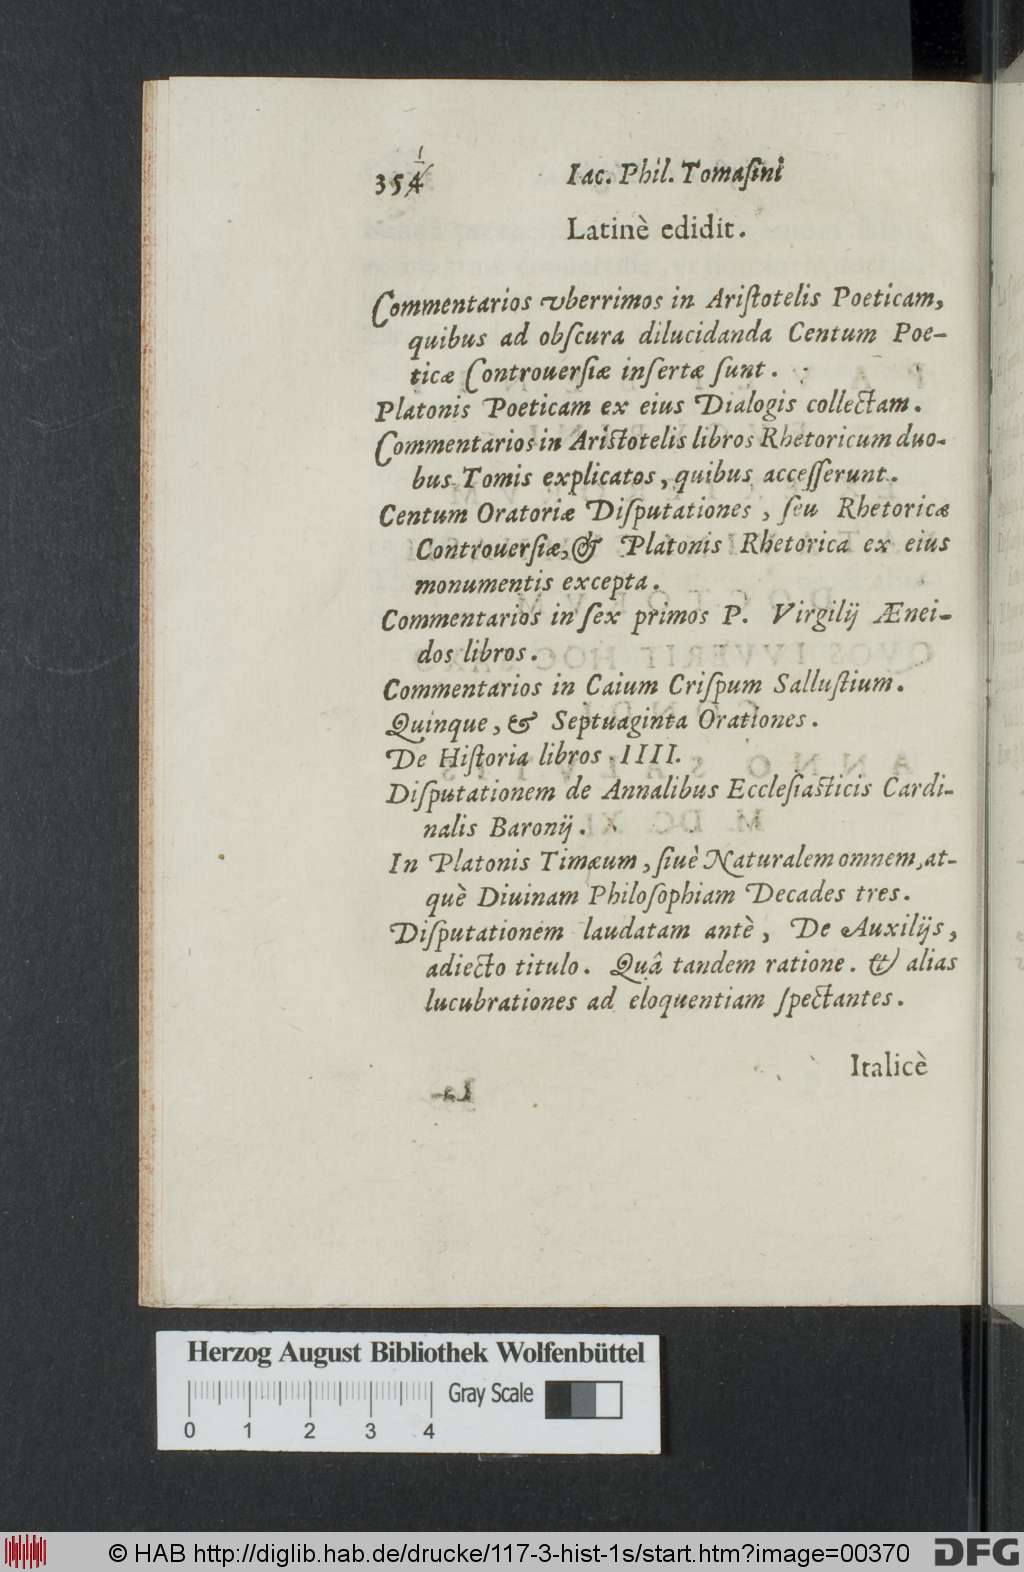 354 1
Iac. Phil. Tomaſini
Latinè edidit.
Commentarios vberrimos in Ariſtotelis Poeticam,
quibus ad obſcura dilucidanda Centum Poe-
ticæ Controuerſiæ inſertæ ſunt.
Platonis Poeticam ex eius Dialogis collectam.
Commentarios in Ariſtotelis libros Rhetoricum duo-
bus Tomis explicatos, quibus acceſſerunt.
Centum Oratoriæ Diſputationes, ſeu Rhetoricæ
Controuerſiæ, & Platonis Rhetorica ex eius
monumentis excepta.
Commentarios in ſex primos P. Virgilij Ænei-
dos libros.
Commentarios in Caium Criſpum Salluſtium.
Quinque, & Septuaginta Orationes.
De Hiſtoria libros IIII.
Diſputationem de Annalibus Eccleſiaſticis Cardi-
nalis Baronij.
In Platonis Timæum, ſiuè Naturalem omnem, at-
què Diuinam Philoſophiam Decades tres.
Diſputationem laudatam antè, De Auxilijs,
adiecto titulo. Quâ tandem ratione. & alias
lucubrationes ad eloquentiam ſpectantes.
Italicè
Herzog August Bibliothek Wolfenbüttel
Gray Scale
0 1 2 3 4
© HAB http://diglib.hab.de/drucke/117-3-hist-1s/start.htm?image=00370
DFG